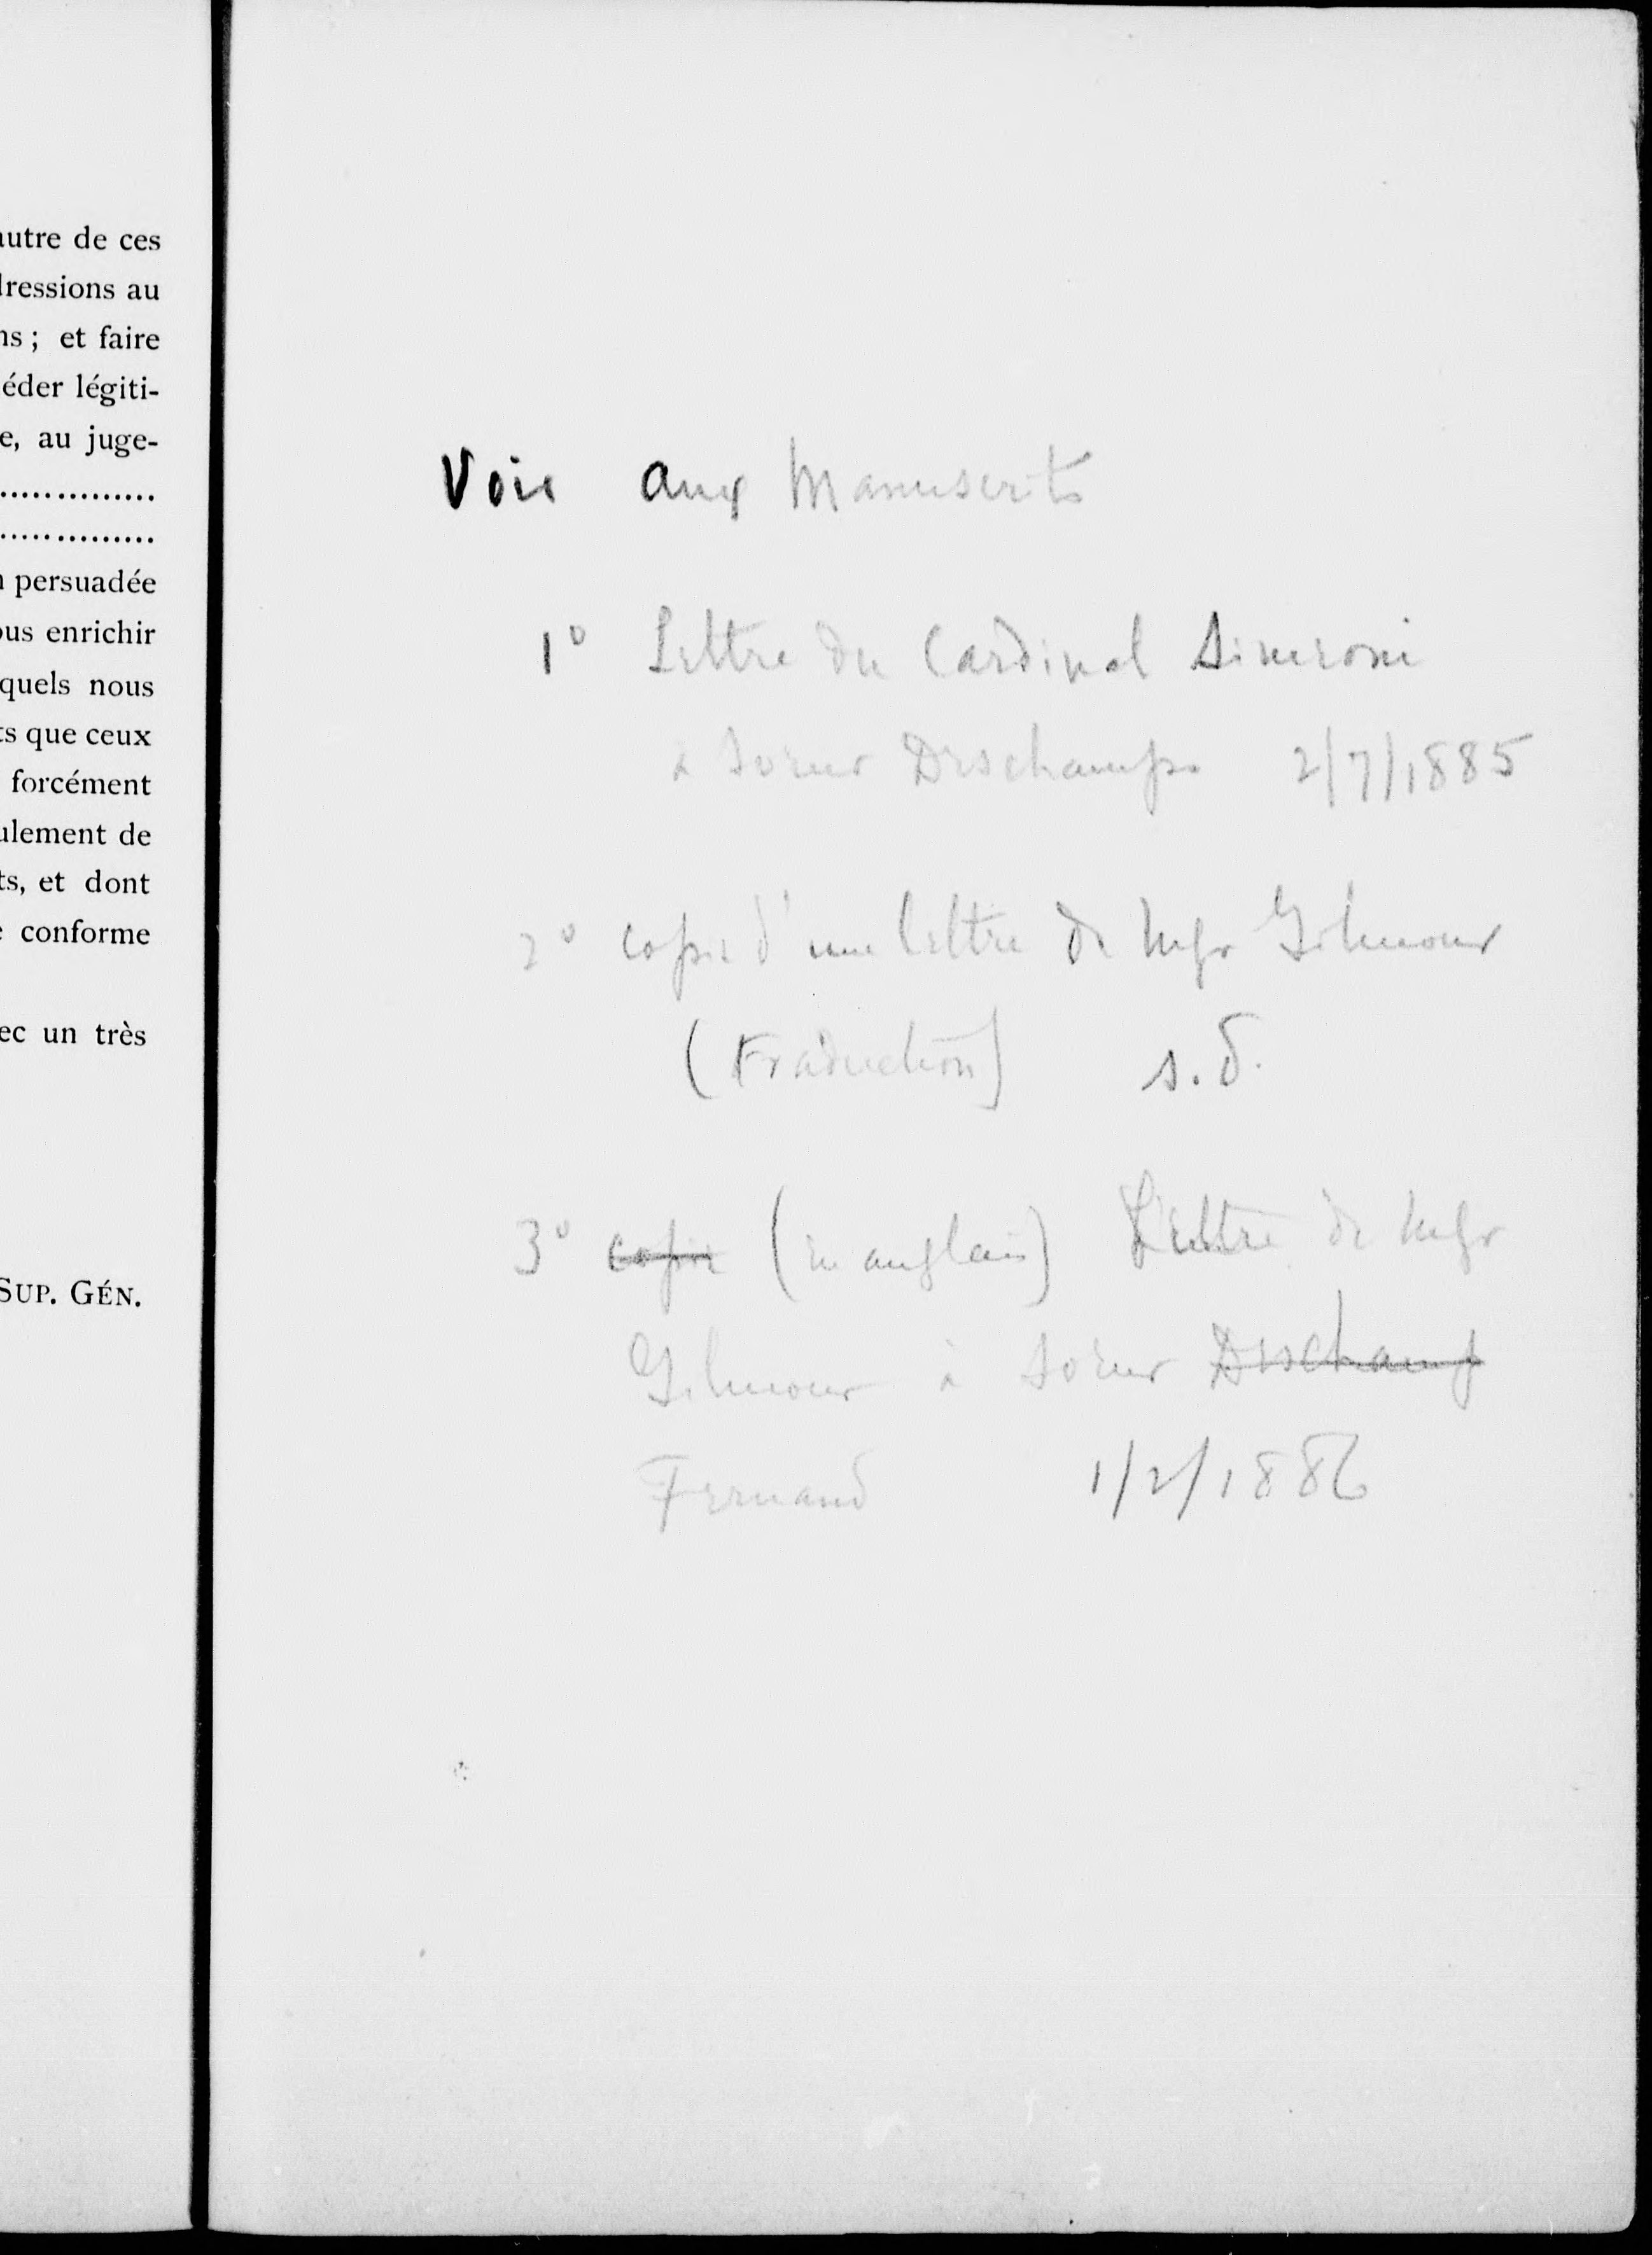 autre de ces
dressions au
ns ; et faire
éder légiti-
e, au juge-
...............
...............
n persuadée
ous enrichir
quels nous
ts que ceux
forcément
ulement de
ts, et dont
e conforme
ec un très
SUP. GÉN.
Voir aux Manuscrits
1° Lettre du Cardinal Simeoni
à Soeur Deschamps 2/7/1885
2° copie d'une lettre de Mgr Gilmour
(Traduction) s.d.
3° copie (en anglais) Lettre de Mgr
Gilmour à Soeur Deschamp
Fernand 1/2/1886